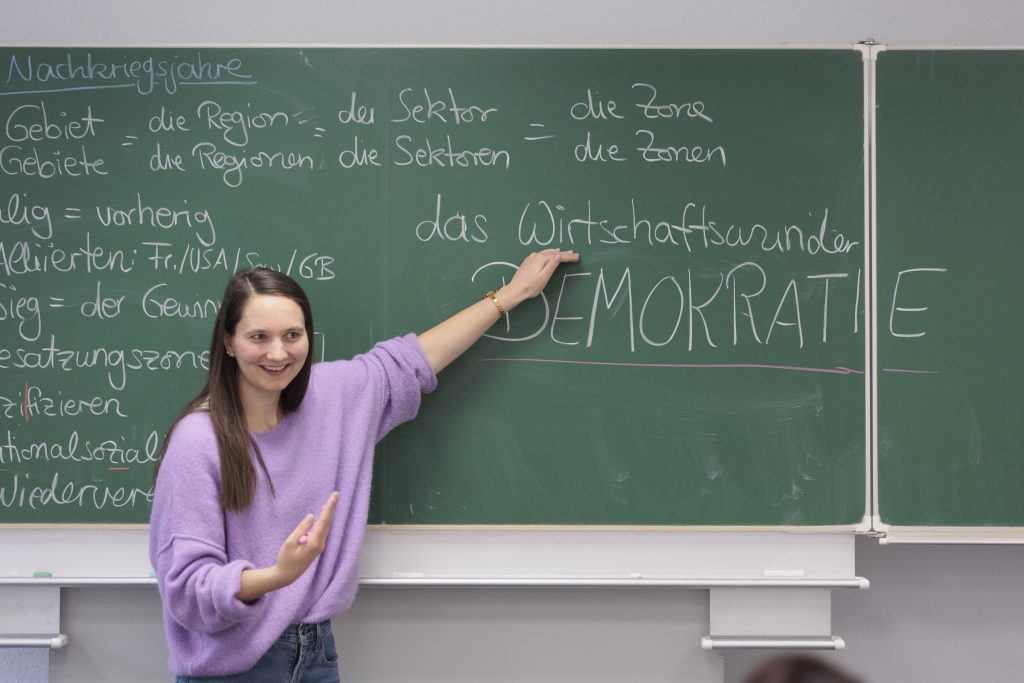 Nachkriegsjahre
Gebiet = die Region = der Sektor = die Zone
Gebiete die Regionen die Sektoren die Zonen
alig = vorherig
Alliierten: Fr./USA/Sow/GB
Sieg = der Gewinn
esatzungszone
zifizieren
ationalsozial
Wiederver
das Wirtschaftswunder
DEMOKRATIE